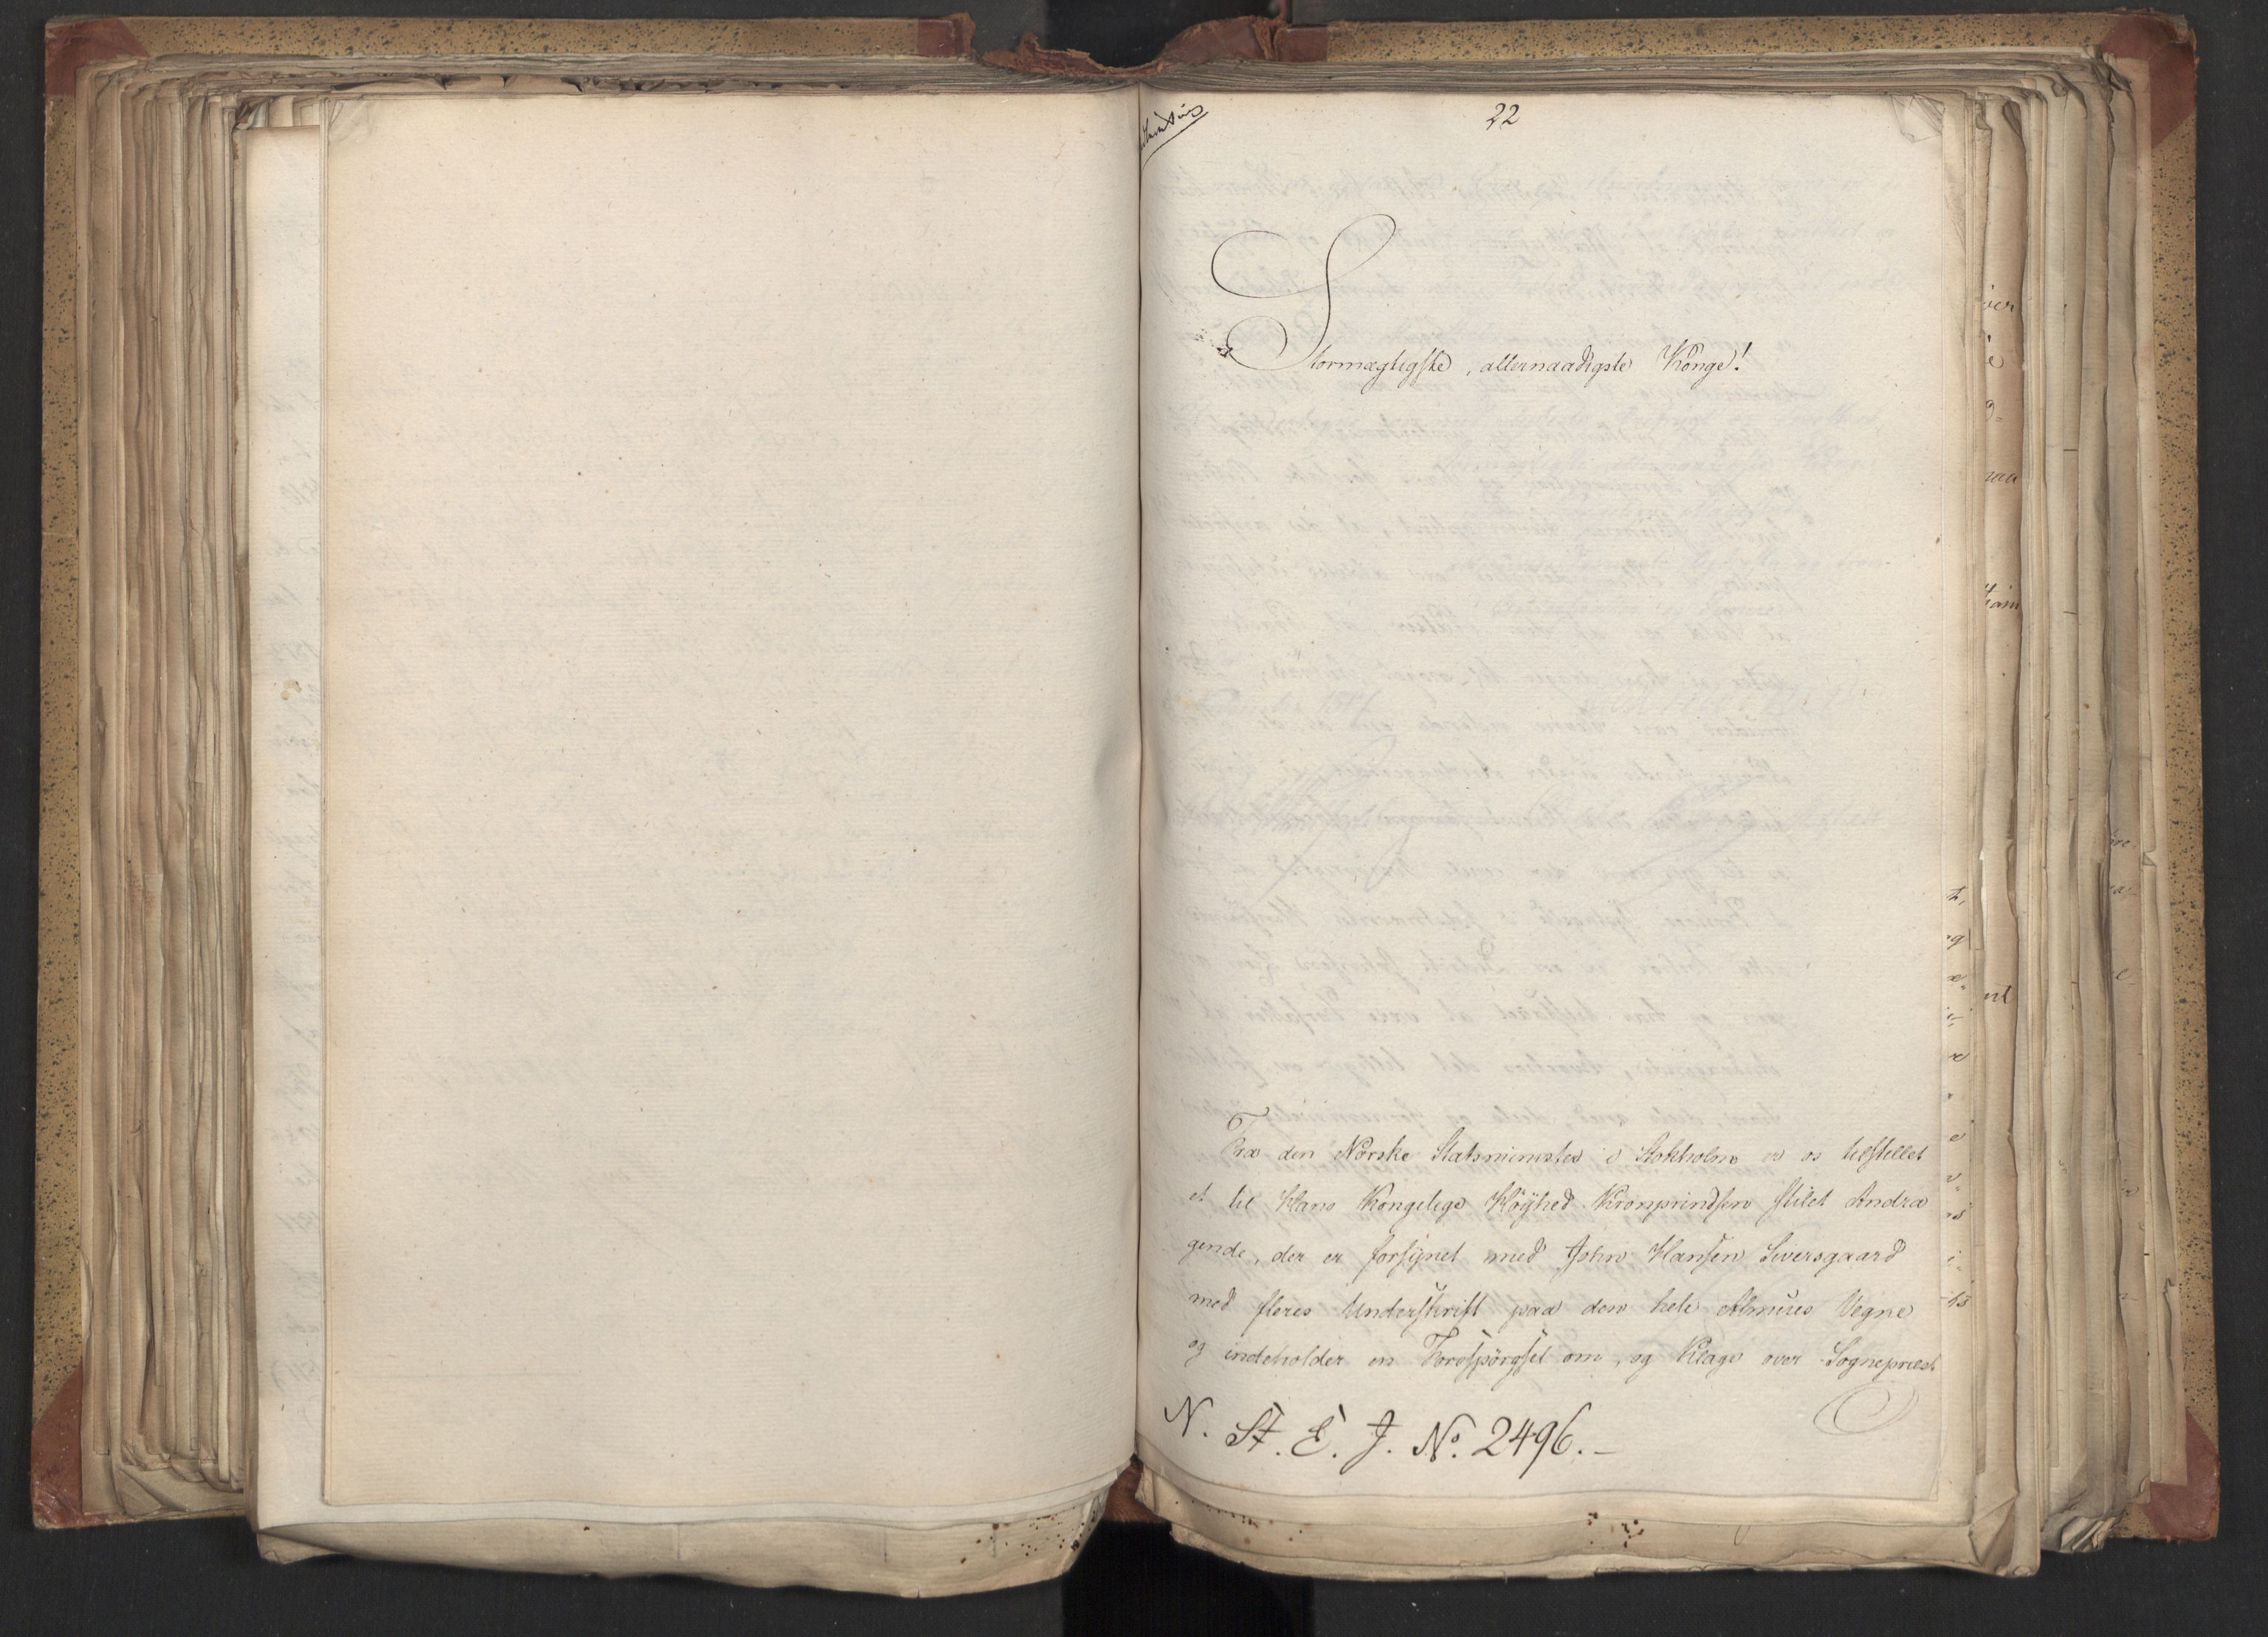 22
Stormægtigste, allernaadigste Konge!
Fra den Norske Statsminister i Stokholm er os tilstillet
et til Hans Kongelige Høyhed Kronprindsen stilet Andra
gende, der er forsynet med John Hansen Siversgaard
med fleres Underskrift paa den hele Almues Vegne
og indeholder en Forespørgsel om, og Klage over Sognepræst
N. St. E. J. No. 2496.-